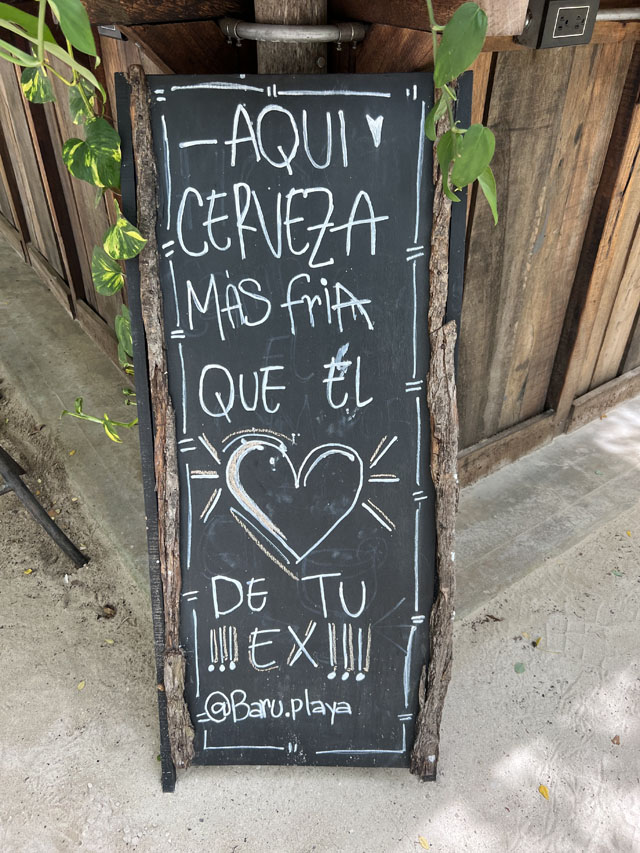 —AQUI
CERVEZA
MÁS friA
QUE ÉL
DE TU
!!!! EX !!!!
@Baru.playa